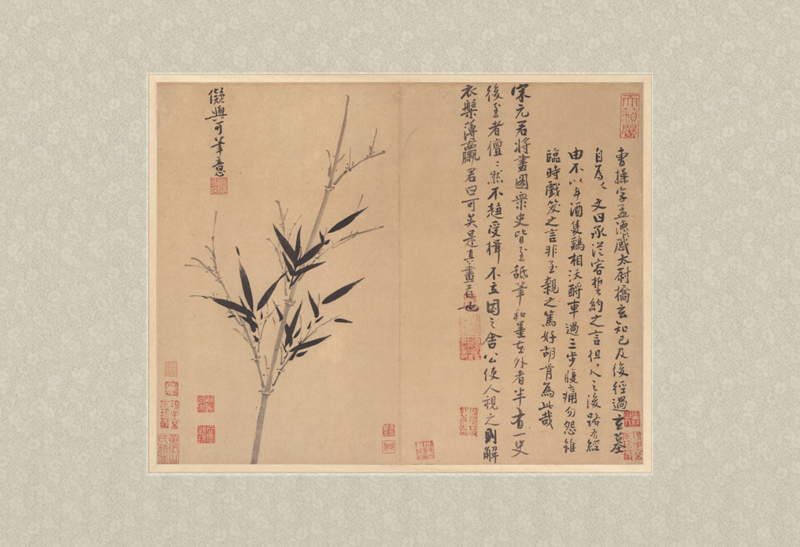 天籟閣
曹操字孟德感太尉橋玄知己及後經過玄墓
自為文曰承從容誓約之言之後路有經
由不以斗酒隻雞相沃酹車過三步腹痛勿怨雖
臨時戲笑之言非至親之篤好胡肯為此哉
宋元君將畫圖衆史皆至舐筆和墨在外者半有一史
後至者儃〻然不趨受揖不立因之舍公使人視之則解
衣槃薄臝君曰可矣是真畫者也
儗與可筆意